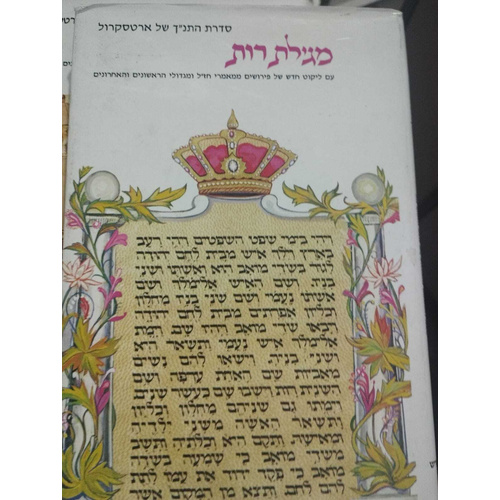 סדרת התנ״ך של ארטסקרול
מגילת רות
עם ליקוט חדש של פירושים ממאמרי חז״ל ומגדולי הראשונים והאחרונים
ויהי בימי שפט השפטים ויהי רעב
בארץ וילך איש מבית לחם יהודה
לגור בשדי מואב הוא ואשתו ושני
בניו ושם האיש אלימלך ושם
אשתו נעמי ושם שני בניו מחלון
וכליון אפרתים מבית לחם יהודה
ויבאו שדי מואב ויהיו שם וימת
אלימלך איש נעמי ותשאר היא
ושני בניה וישאו להם נשים
מאביות שם האחת ערפה ושם
השנית רות וישבו שם כעשר שנים
וימתו גם שניהם מחלון וכליון
ותשאר האשה משני ילדיה
ומאישה ותקם היא וכלתיה ותשב
משדי מואב כי שמעה בשדה
מואב כי פקד יהוה את עמו לתת
להם לחם ותצא מן המקום אשר